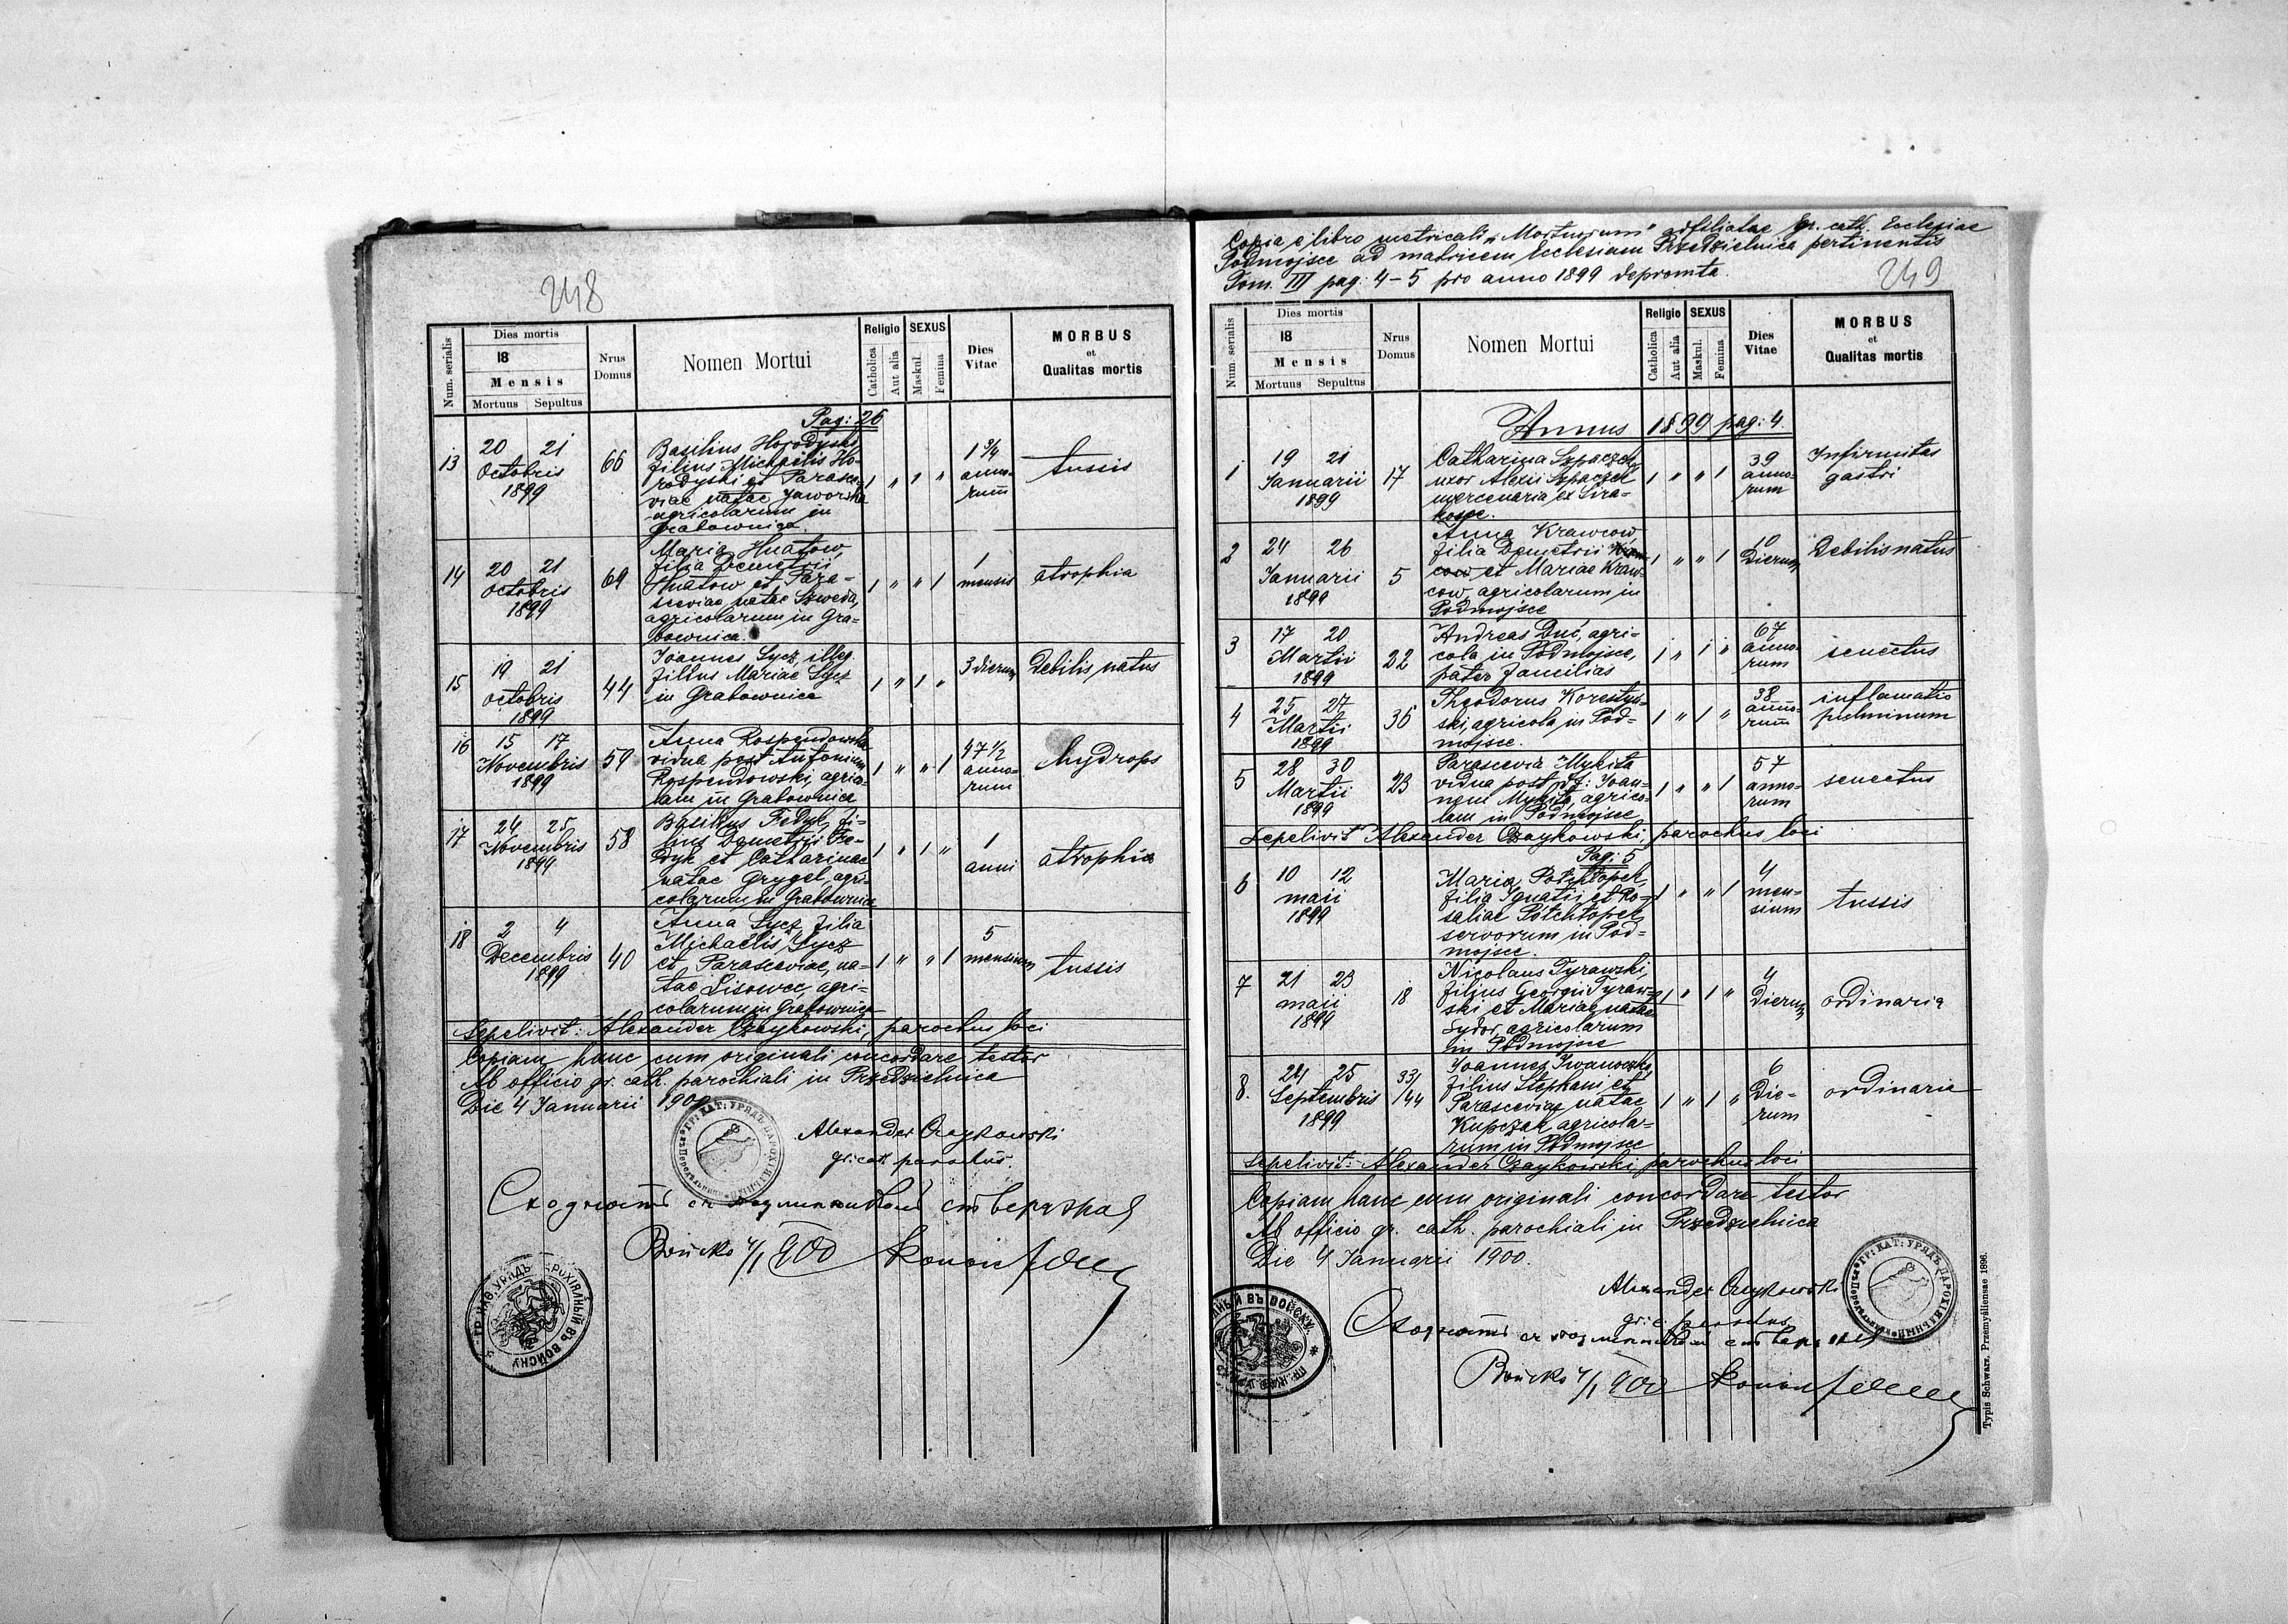 248
Num. serialis
Dies mortis
18
Mensis
Mortuus Sepultus
Nrus Domus
Nomen Mortui
Religio
Catholica
Aut alia
SEXUS
Maskul.
Femina
Dies Vitae
MORBUS
et
Qualitas mortis
Pag: 26
13
20 21
Octobris
1899
66
Basilius Horodyski
filius Michaelis Ho-
rodyski et Parasce-
viae natae Jaworska
agricolarum in
Grabownica.
1 " 1 "
1 3/4
anno-
rum
tussis
14
20 21
Octobris
1899
69
Maria Hnatow,
filia Demetrii
Hnatow et Para-
sceviae natae Szweda,
agricolarum in Gra-
bownica.
1 " " 1
1
mensis
atrophia
15
19 21
Octobris
1899
44
Joannes Sycz, illeg.
filius Mariae Sycz
in Grabownica
1 " 1 "
3 dierum
Debilis natus
16
15 17
Novembris
1899
59
Anna Rospendowska
vidua post Antonium
Rospendowski, agrico-
lam in Grabownica
1 " " 1
47 1/2
anno-
rum
hydrops
17
24 25
Novembris
1899
58
Basilius Fedyk, fi-
lius Demetrii Fe-
dyk et Catharinae
natae Grygel, agri-
colarum in Grabownica
1 " 1 "
1
anni
atrophia
18
2 4
Decembris
1899
40
Anna Sycz, filia
Michaelis Sycz
et Parasceviae, na-
tae Lisowec, agri-
colarum in Grabownica
1 " " 1
5
mensium
tussis
Sepelivit: Alexander Czaykowski, parochus loci
Copiam hanc cum originali concordare testor
Ab officio gr. cath. parochiali in Przedzielnica
Die 4 Januarii 1900
Alexander Czaykowski
gr. cath. parochus.
Войско 4/1 900
ВЪ ВОЙСКУ
Copia e libro metricali "Mortuorum" adfiliatae gr. cath. Ecclesiae
Podmojsce ad matricem Ecclesiam Przedzielnica pertinentis
Tom. III pag: 4-5 pro anno 1899 depromta.
249
Num. serialis
Dies mortis
18
Mensis
Mortuus Sepultus
Nrus Domus
Nomen Mortui
Religio
Catholica
Aut alia
SEXUS
Maskul.
Femina
Dies Vitae
MORBUS
et
Qualitas mortis
Annus 1899 pag: 4.
1
19 21
Januarii
1899
17
Catharina Szpaczek
uxor Alexii Szpaczek
mercenaria ex Sira-
kosce.
1 " " 1
39
anno-
rum
Infirmitas
gastri
2
24 26
Januarii
1899
5
Anna Krawcow,
filia Demetrii Kraw-
cow et Mariae Kraw-
cow, agricolarum in
Podmojsce
1 " " 1
10
Dierum
Debilis natus
3
17 20
Martii
1899
22
Andreas Duć, agri-
cola in Podmojsce,
pater familias
1 " 1 "
67
anno-
rum
senectus
4
25 27
Martii
1899
36
Theodorus Korestyn-
ski, agricola in Pod-
mojsce.
1 " 1 "
38
anno-
rum
inflamatio
pulminum
5
28 30
Martii
1899
23
Parascevia Mykita
vidua post df: Joan-
nem Mykita, agrico-
lam in Podmojsce
1 " " 1
57
anno-
rum
senectus
Sepelivit Alexander Czaykowski, parochus loci
Pag: 5
6
10 12
maii
1899
Maria
filia Ignatii et Ro-
saliae
servorum in Pod-
mojsce.
1 " " 1
4
men-
sium
tussis
7
21 23
maii
1899
18
Nicolaus Tyrawski,
filius Georgii Tyraw-
ski et Mariae natae
Sydor, agricolarum
in Podmojsce
1 " 1 "
4
Dierum
ordinaria
8.
24 25
Septembris
1899
33/44
Joannes Iwanoczko,
filius Stephani et
Parasceviae natae
Kupczak, agricola-
rum in Podmojsce
1 " 1 "
6
Die-
rum
ordinaria
Sepelivit: Alexander Czaykowski, parochus loci
Copiam hanc cum originali concordare testor
Ab officio gr. cath. parochiali in Przedzielnica
Die 4 Januarii 1900.
Alexander Czaykowski
gr. c. parochus
Войско 4/1 900
ВЪ ВОЙСКУ
Typis Schwarz. Przemyśliensae 1896.